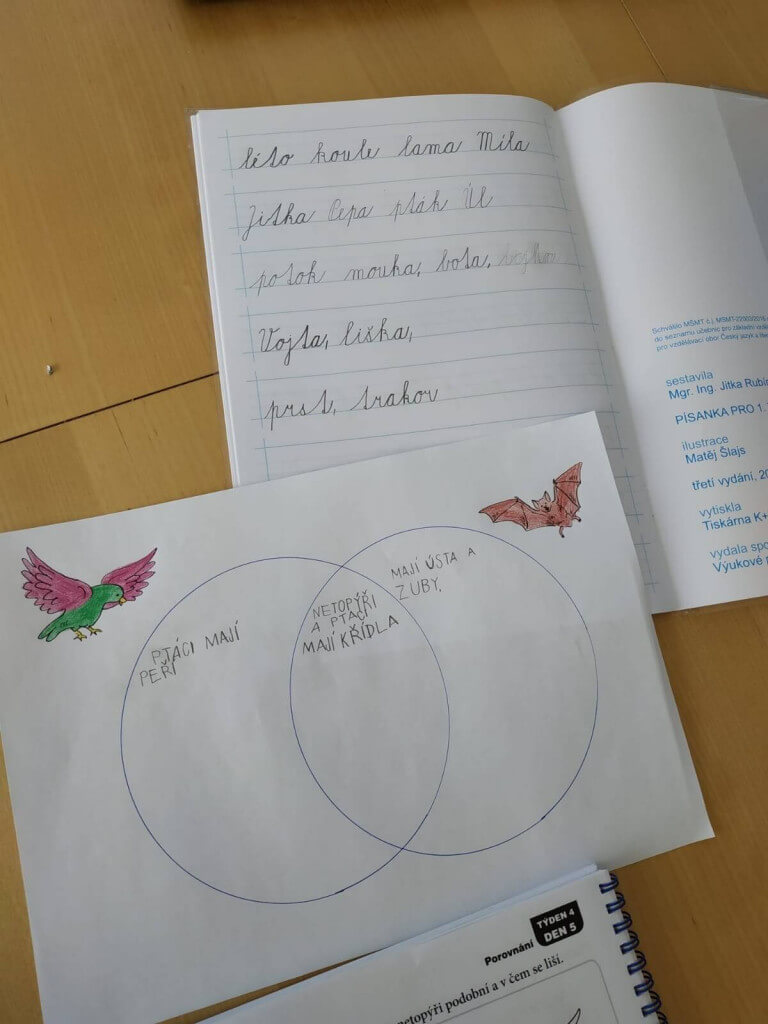 léto koule lama Míla
Jitka Pepa pták Úl
potok mouka, bota,
Vojta, liška,
prst, trakor
Schválilo MŠMT č.j. MSMT-22303/2016
do seznamu učebnic pro základní
pro vzdělávací obor Český jazyk a
sestavila
Mgr. Ing. Jitka
PÍSANKA PRO 1.
ilustrace
Matěj Šlajs
třetí vydání,
vytiskla
Tiskárna
vydala
Výukové
PTÁCI MAJÍ
PEŘÍ
NETOPÝŘI
A PTÁCI
MAJÍ KŘÍDLA
MAJÍ ÚSTA A
ZUBY.
TÝDEN 4
DEN 5
Porovnání
netopýři podobní a v čem se liší.